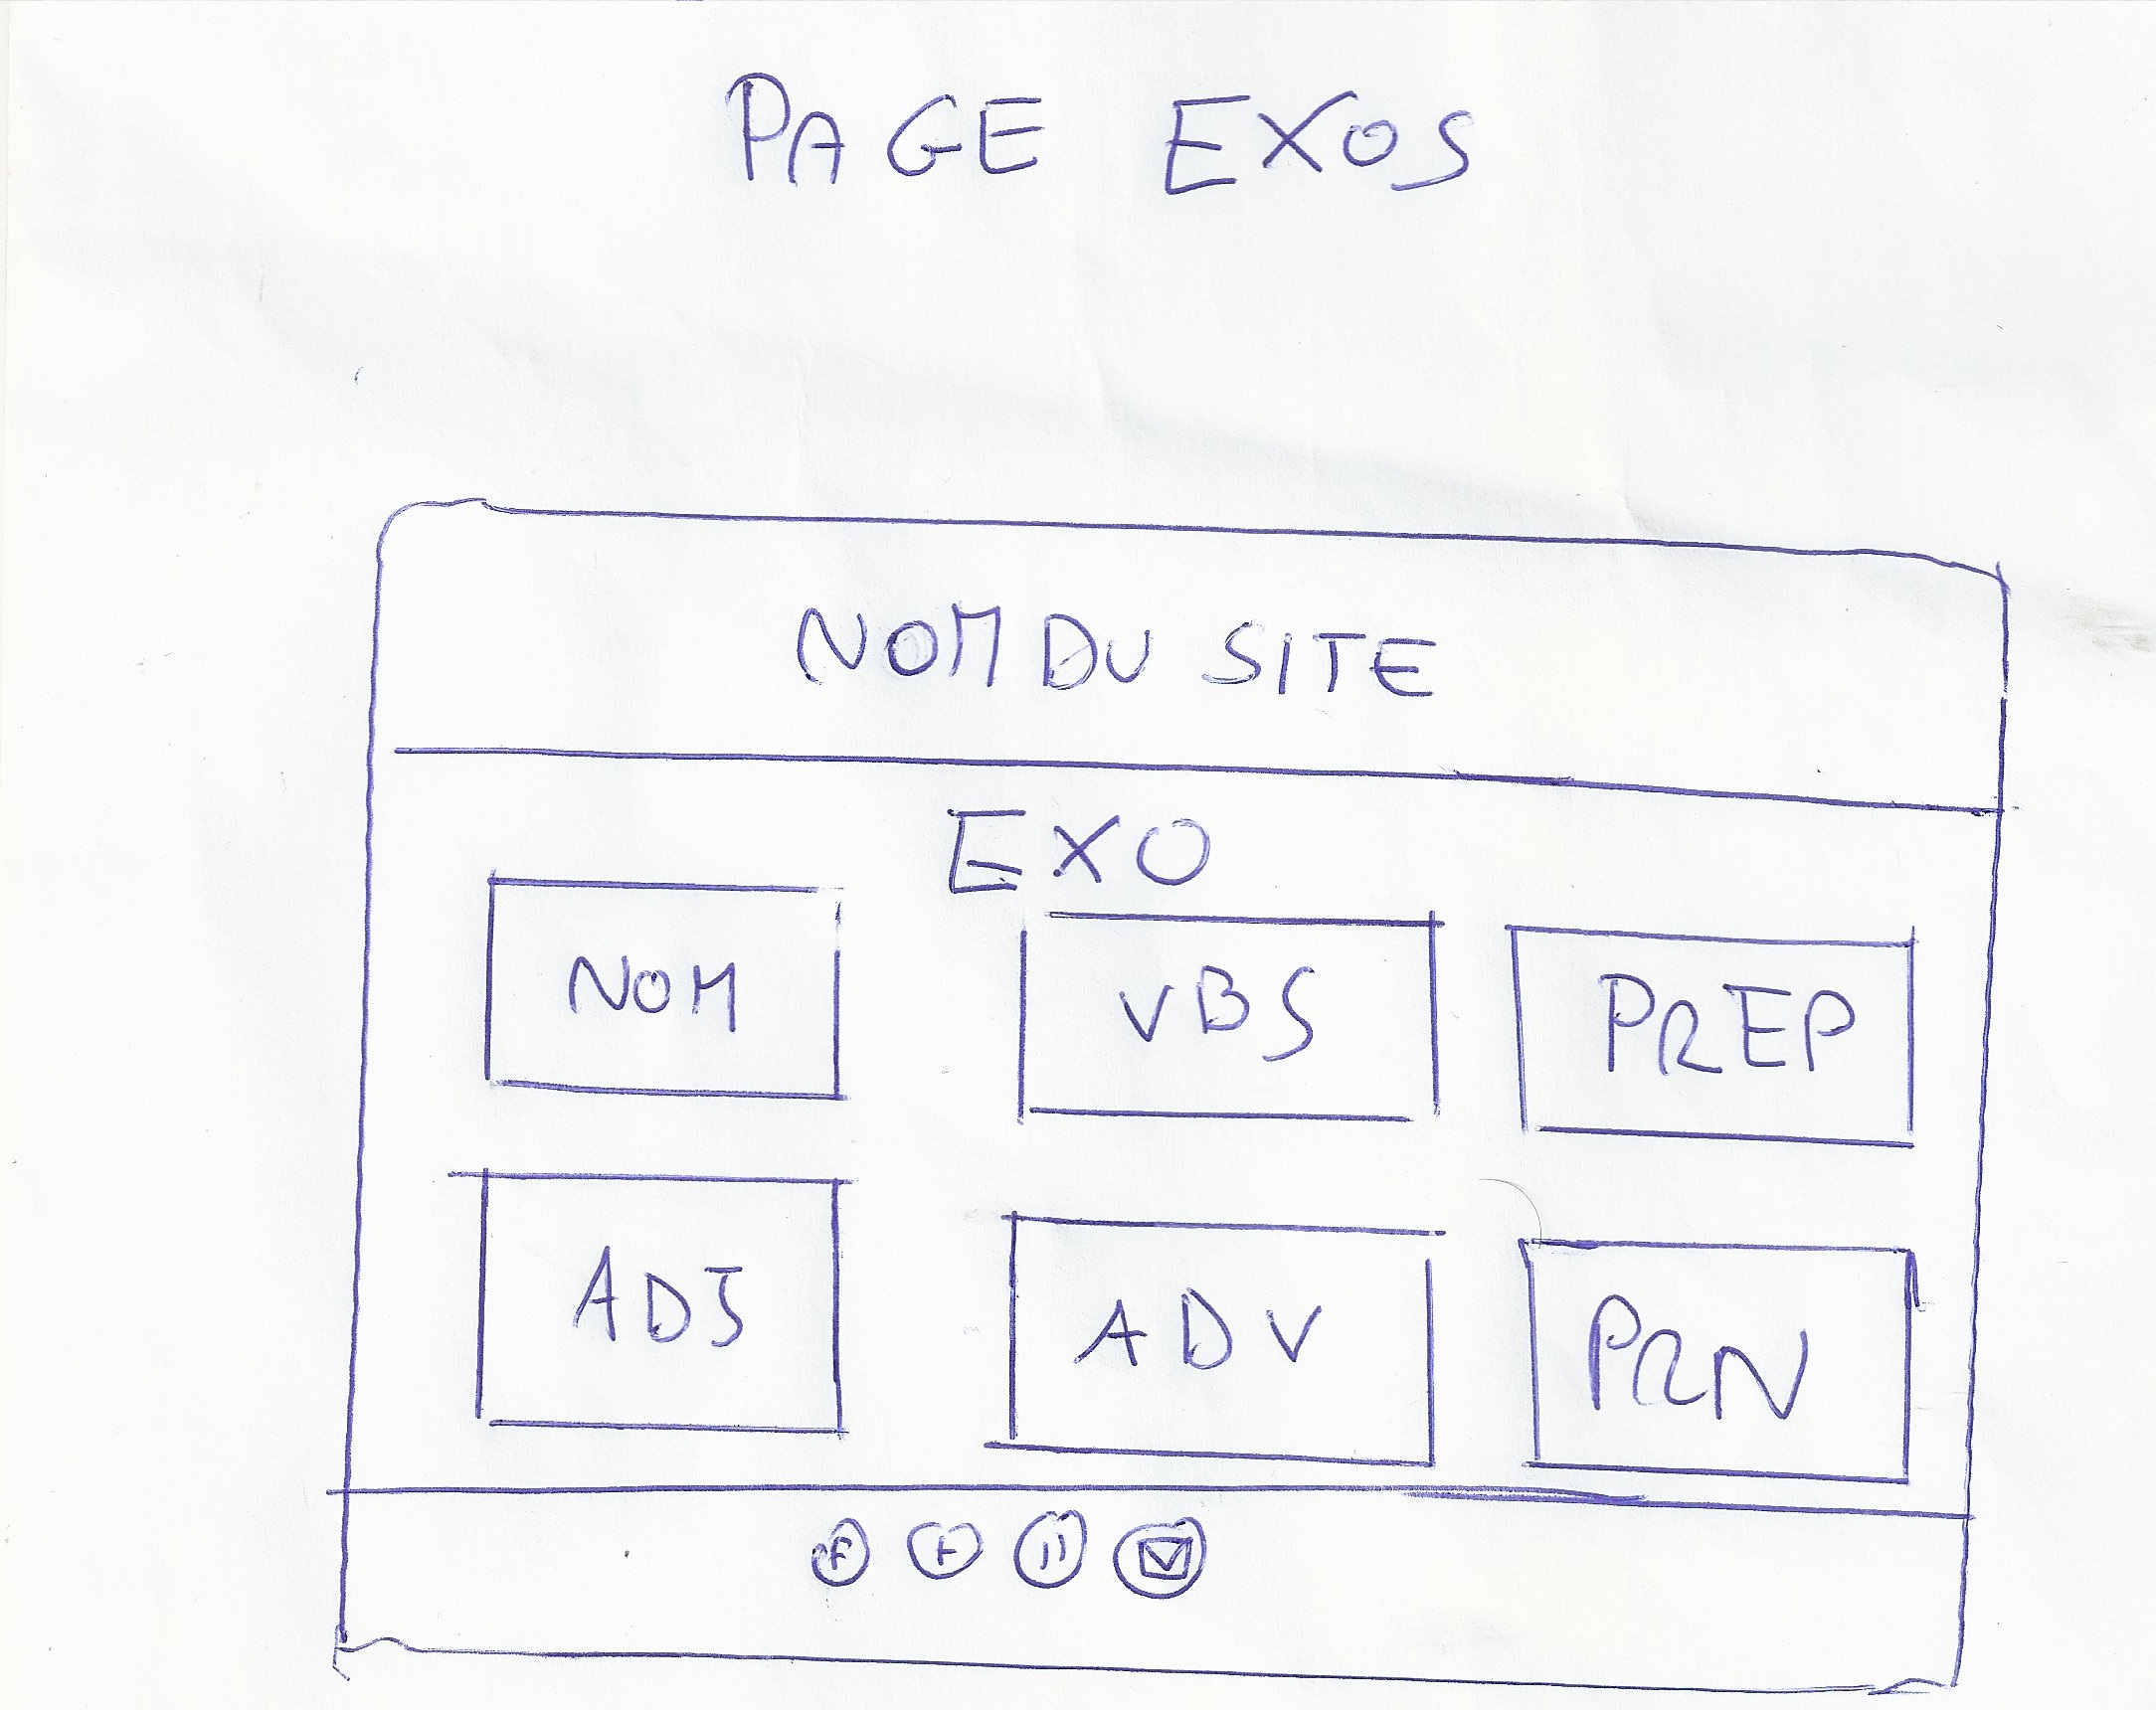 PAGE EXOS
NOM DU SITE
EXO
NOM VBS PREP
ADJ ADV PRN